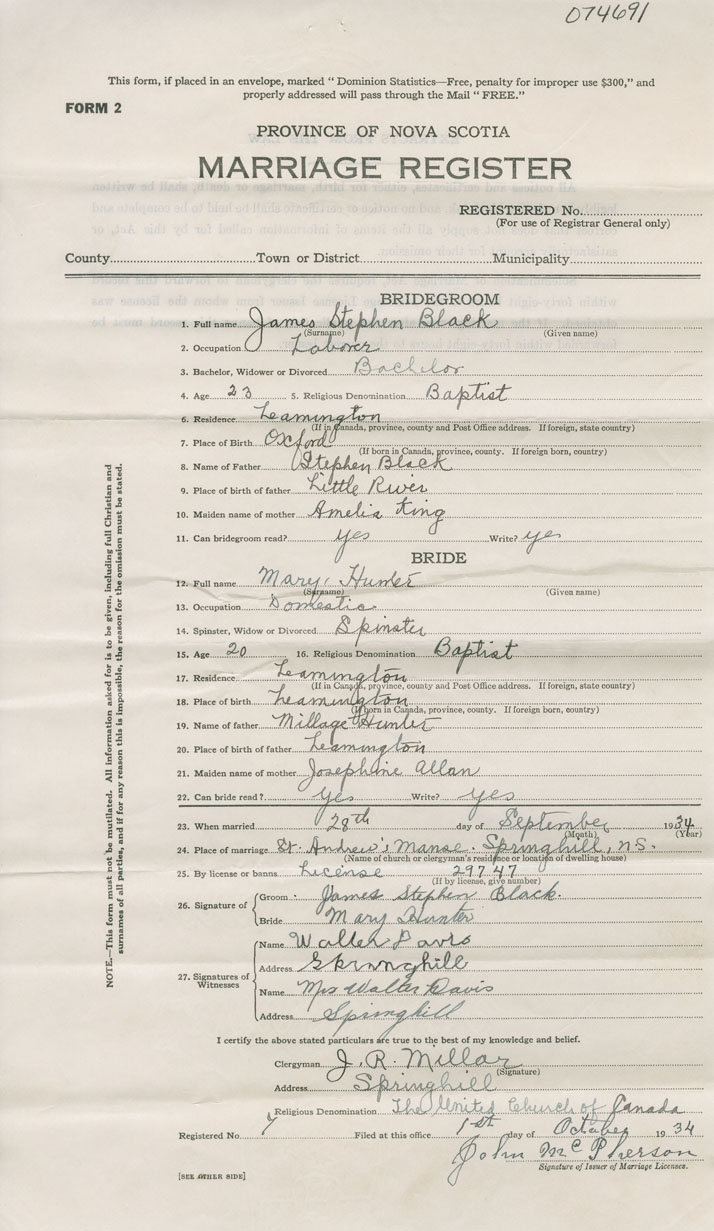 074691
This form, if placed in an envelope, marked " Dominion Statistics—Free, penalty for improper use $300," and
properly addressed will pass through the Mail " FREE."
FORM 2
PROVINCE OF NOVA SCOTIA
MARRIAGE REGISTER
REGISTERED No.
(For use of Registrar General only)
County Town or District Municipality
BRIDEGROOM
1. Full name James Stephen Black
(Surname) (Given name)
2. Occupation Laborer
3. Bachelor, Widower or Divorced Bachelor
4. Age 23 5. Religious Denomination Baptist
6. Residence Leamington
(If in Canada, province, county and Post Office address. If foreign, state country)
7. Place of Birth Oxford
(If born in Canada, province, county. If foreign born, country)
8. Name of Father Stephen Black
9. Place of birth of father Little River
10. Maiden name of mother Amelia King
11. Can bridegroom read? yes Write? yes
BRIDE
12. Full name Mary Hunter
(Surname) (Given name)
13. Occupation Domestic
14. Spinster, Widow or Divorced Spinster
15. Age 20 16. Religious Denomination Baptist
17. Residence Leamington
(If in Canada, province, county and Post Office address. If foreign, state country)
18. Place of birth Leamington
(If born in Canada, province, county. If foreign born, country)
19. Name of father Millage Hunter
20. Place of birth of father Leamington
21. Maiden name of mother Josephine Allan
22. Can bride read? yes Write? yes
23. When married 28th day of September 1934
(Month) (Year)
24. Place of marriage St. Andrew's Manse. Springhill, N.S.
(Name of church or clergyman's residence or location of dwelling house)
25. By license or banns License 29747
(If by license, give number)
26. Signature of
Groom James Stephen Black.
Bride Mary Hunter
27. Signatures of Witnesses
Name Walter Davis
Address Springhill
Name Mrs Walter Davis
Address Springhill
I certify the above stated particulars are true to the best of my knowledge and belief.
Clergyman J. R. Millar
(Signature)
Address Springhill
Religious Denomination The United Church of Canada
Registered No. 7 Filed at this office 1st day of October 1934
John McPherson
Signature of Issuer of Marriage Licenses.
[SEE OTHER SIDE]
NOTE.—This form must not be mutilated. All information asked for is to be given, including full Christian and
surnames of all parties, and if for any reason this is impossible, the reason for the omission must be stated.